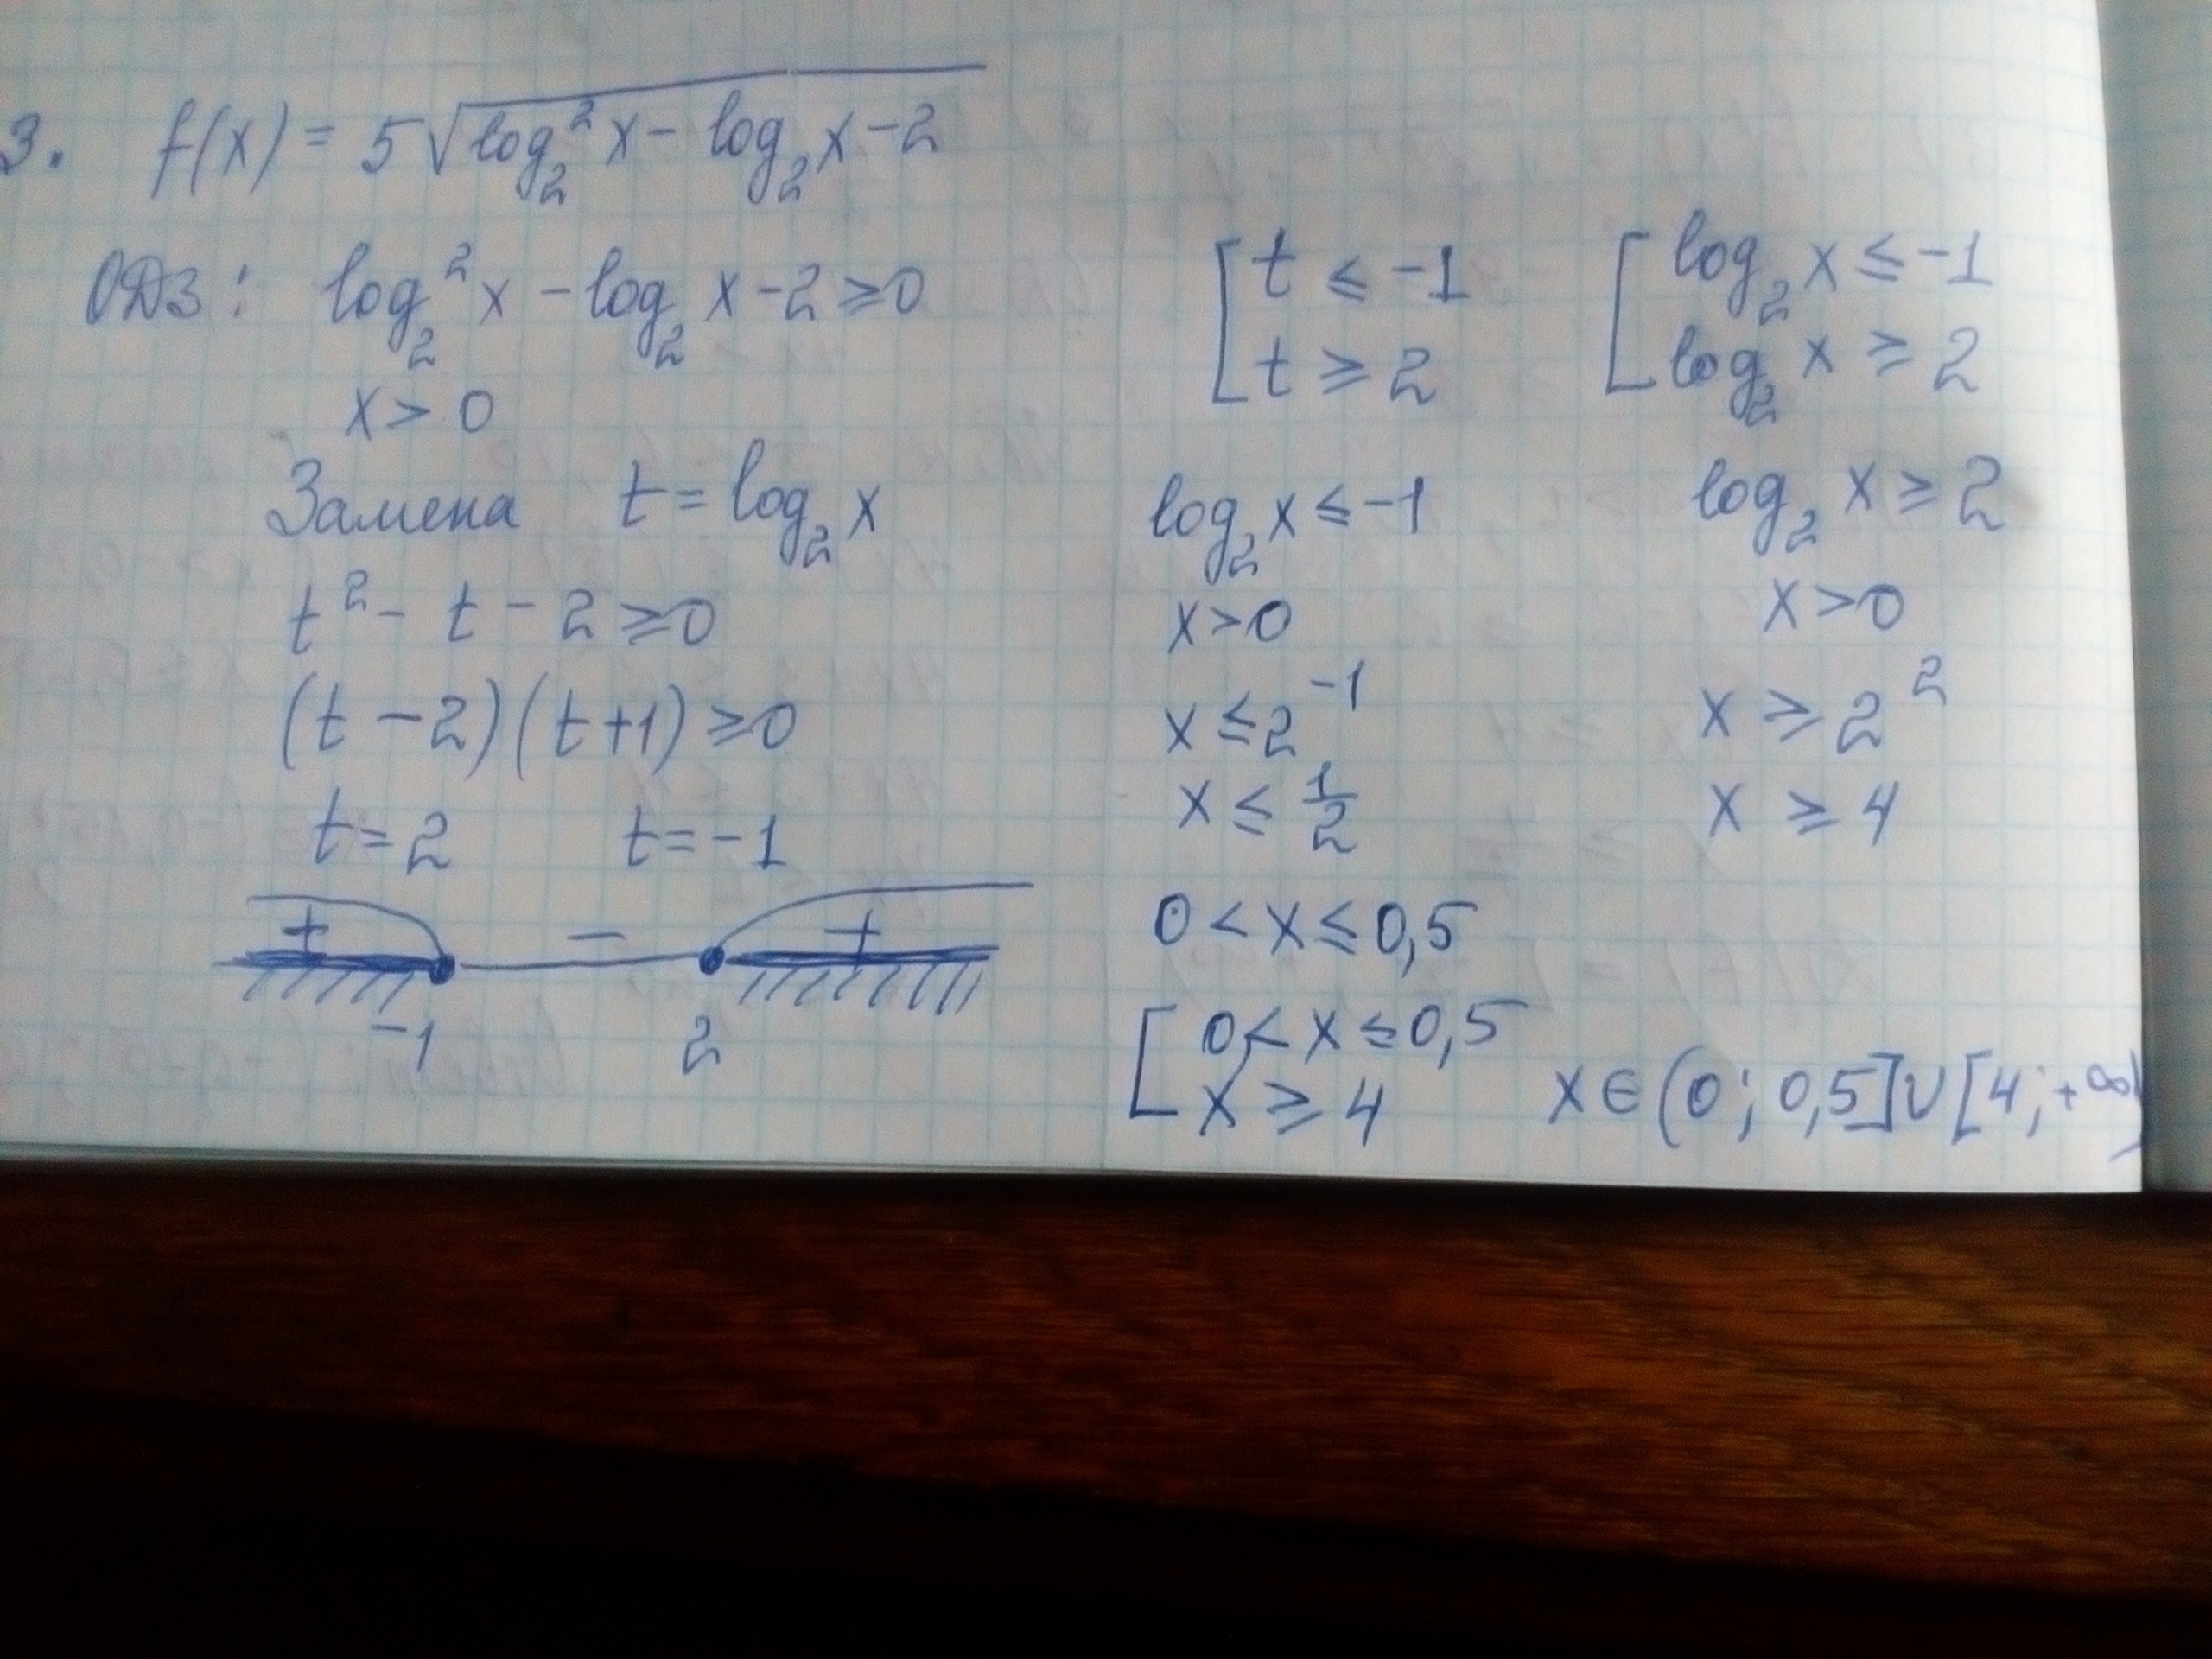 3. f(x) = 5√(log₂²x - log₂x - 2)
ОДЗ: log₂²x - log₂x - 2 ≥ 0
x > 0
Замена t = log₂x
t² - t - 2 ≥ 0
(t - 2)(t + 1) ≥ 0
t = 2 t = -1
+ - +
-1 2
[ t ≤ -1
t ≥ 2
[ log₂x ≤ -1
log₂x ≥ 2
log₂x ≤ -1
x > 0
x ≤ 2⁻¹
x ≤ 1/2
0 < x ≤ 0,5
log₂x ≥ 2
x > 0
x ≥ 2²
x ≥ 4
[ 0 < x ≤ 0,5
x ≥ 4
x ∈ (0; 0,5] ∪ [4; +∞)